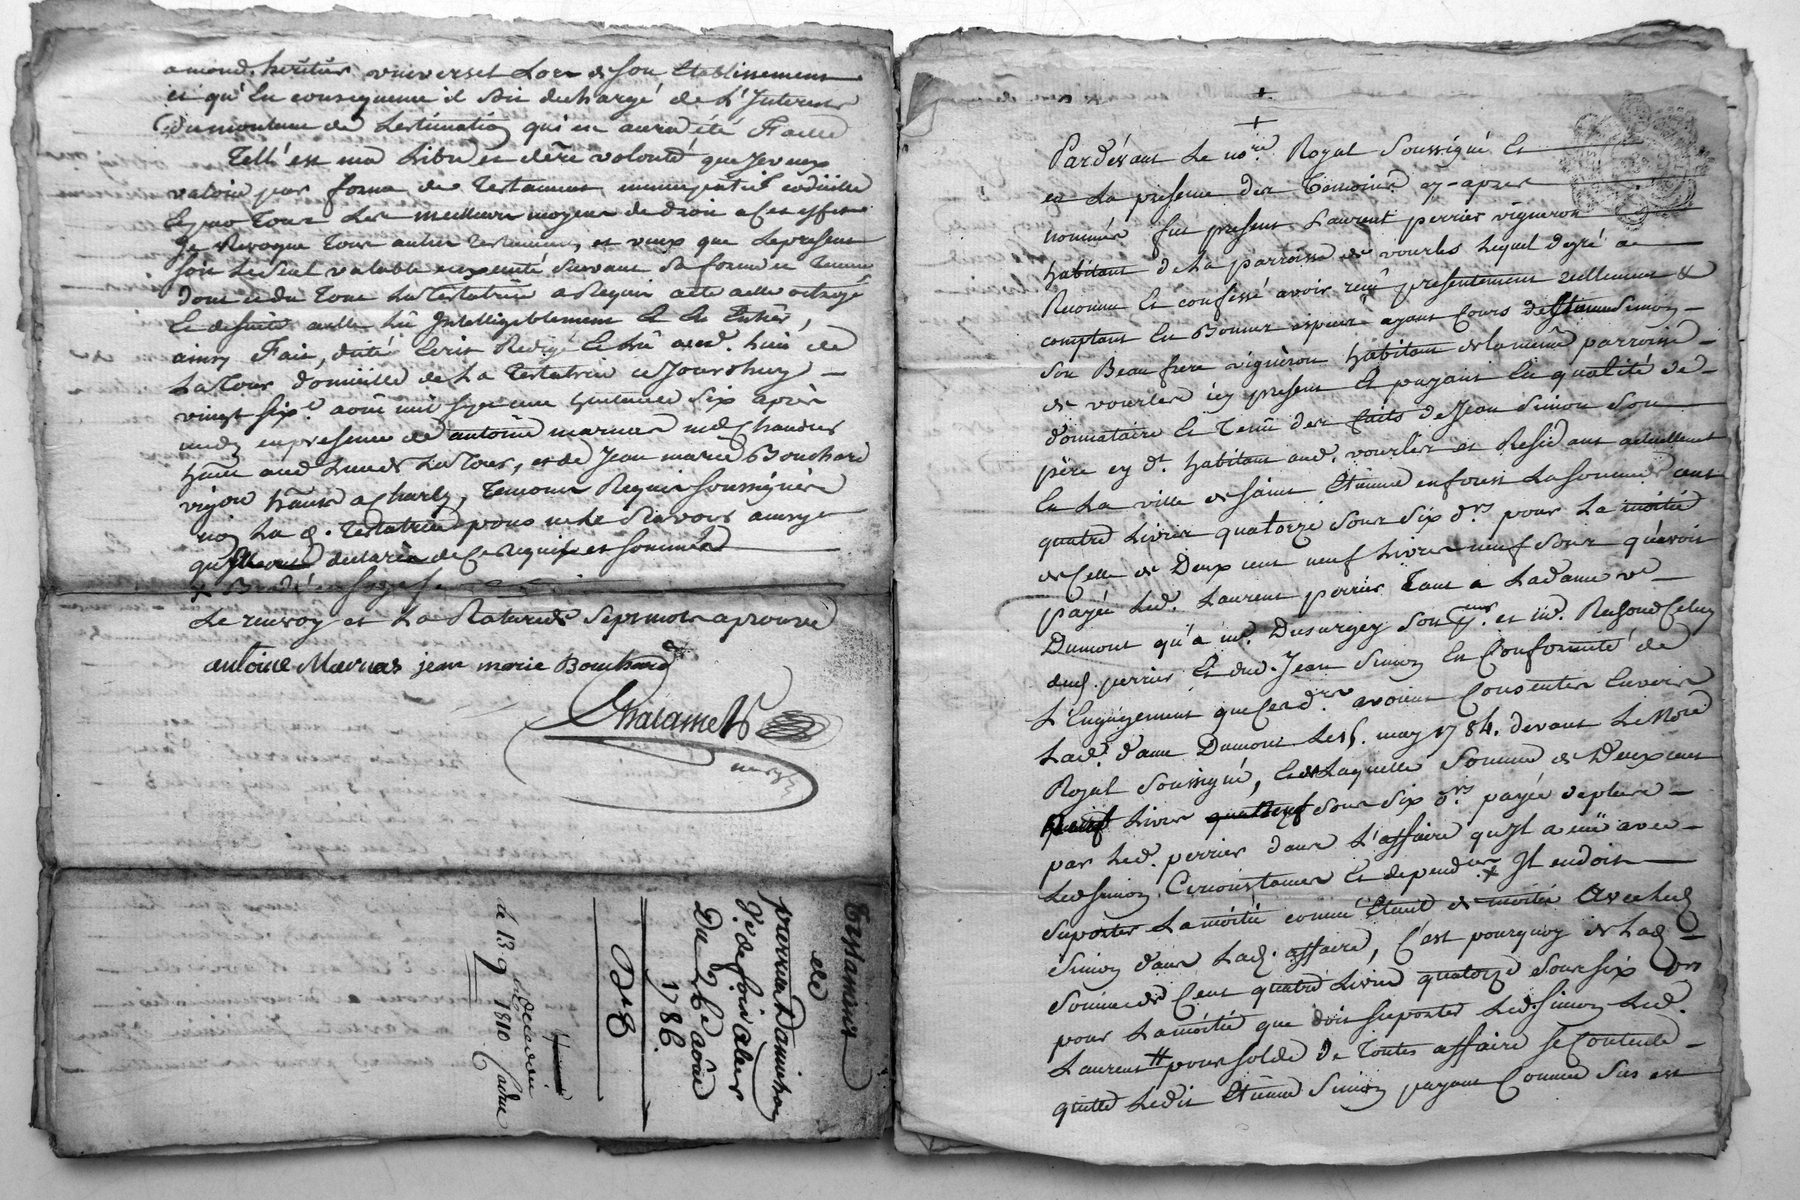 amond. heritier universel Lors de son Etablissement
et qu'En consequence il soit dechargé de L'Interest
du montant de Lestimation qui en aura été Faitte
Tell'est ma Libre et dere volonté que Je veux
valoir par forme de Testament nuncupatif codicille
et par Tous Les meilleurs moyens de droit a Cet effet
Je Revoque Tous autres testaments, et veux que Le present
soit Le Seul valable executé Suivant Sa forme et Teneur
Dont et du Tout La Testatrice a Requis acte a elle octroyé
Et de suitte a elle Lû Intelligiblement Et En Entier,
ainsy Fait, dicté Ecrit Redigé Et Lû aud. Lieu de
La Tour domicille de La Testatrice ce Jourdhuy
vingt six.e aoüt mil sept cent huitante Six après
midy en presence de antoine marnas md Chandes
hant aud Lieu de La Tour, et de Jean marie Bouchard
vigon hant a Charly, Temoins Requis soussignés
non La d. Testatrice pour ne le Sçavoir ainsy
qu'elle a declaré de Ce Requise et sommée
Le renvoy et La Rature de Sept mots aprouvé
antoine Marnas jean marie Bouchard
Chalamel
Testament
de
pierrette Damichon
du 26e août
1786
B. E
le 13 9bre 1810
+
+
Pardevant Le nore. Royal Soussigné Et
en La presence des Temoins cy-apres
nommés fut present Laurent perrier vigneron
habitant de La parroisse de vourles Lequel de gré a
Reconnu Et confessé avoir reçû presentement reellement &
comptant En Bonnes especes ayant Cours d'Etienne Simon
son Beau frere vigneron habitant de la même parroisse
de vourles icy present Et payant En qualité de
donnataire Et Tenû des faits de Jean Simon Son
père cy dt. habitant aud. vourles et Residant actuellement
En La ville de Saint Etienne en forest La Somme de cent
quatre Livres quatorze Sous Six drs. pour La moitié
de Celle de Deux cent neuf Livres neuf Sous qu'avoit
payée Led. Laurent perrier Tant a La dame ve
Dumont qu'a mr. Dusurgey Son pr. et
dud. perrier Et dud. Jean Simon En Conformité de
L'Engagement que Lesd. avoient Consenties Envers
Lad. dame Dumont Le 15. may 1784. devant Le Nore
Royal Soussigné, Et de Laquelle Somme de Deux cent
neuf Livres Sous Six drs. payée
par Led. perrier dans L'affaire qu'Il a eüe avec
Led Simon, Circonstances Et depend.ces + Il en doit
suporter La moitié comme Etant de moitié Avec Led
Simon dans Lad. affaire, C'est pourquoy de Lad
Somme de Cent quatre Livres quatorze Sous Six drs
pour La moitié que doit suporter Led. Simon Led.
Laurent # pour solde de Toutes affaires Se Contente
quitte Ledit Etienne Simon payant Comme Sus est